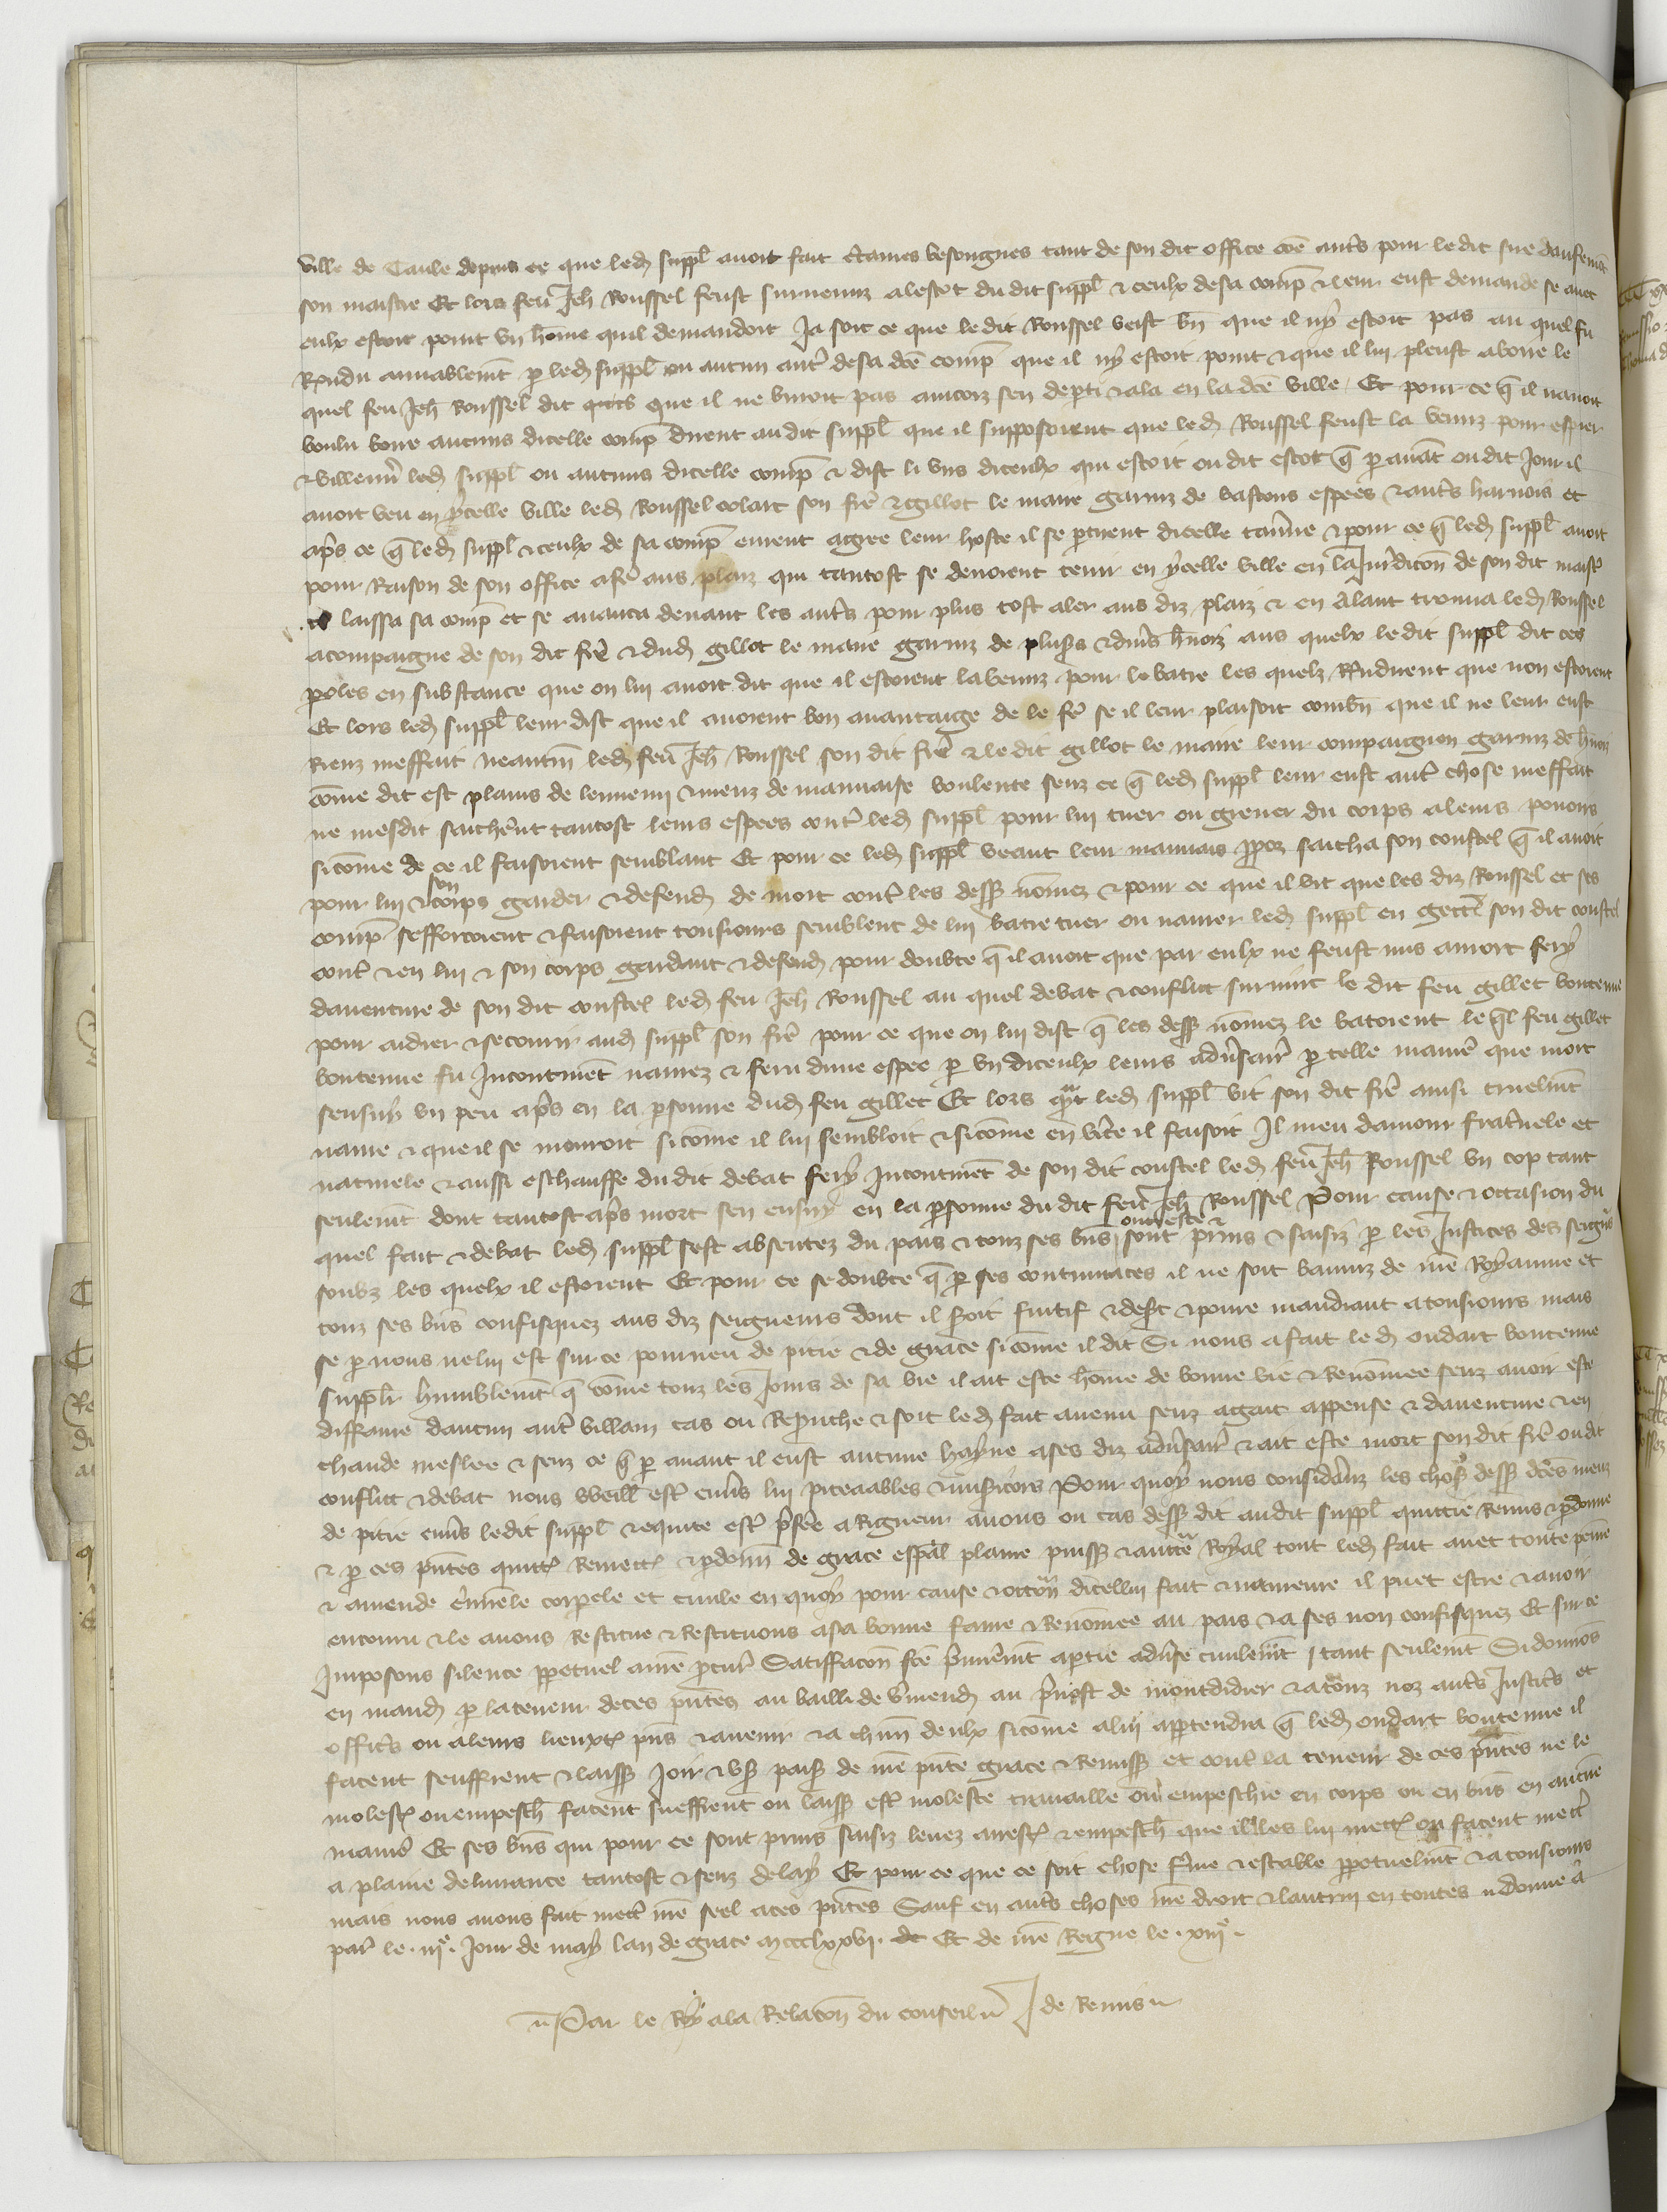 ville de Caule depuis ce que led suppl avoit fait ctaines besongnes tant de son dit office coe autrs pour le dit sire
son maistre Et lors feu Jeh Roussel feust survenuz a lescot du dit suppl et ceulx de sa comp et leur eust demande se avec
eulx estoit point un home quil demandoit Ja soit ce que le dit Roussel veist bn que il ny estoit pas au quel fu
Rendu amiablemt p led suppl ou aucun autr de sa dce comp que il ny estoit point et que il lui pleust a boire le
quel feu Jeh Roussel dit que il ne buroit pas aincois sen depti et ala en la dce ville Et pour ce q il navoit
voulu boire aucuns dicelle comp dirent au dit suppl que il supposoient que led Roussel feust la venuz pour espier
et villenner led suppl ou aucuns dicelle comp et dist li uns diceulx qui estoit ou dit escot q p avat ou dit jour il
avoit veu en ycelle ville led Roussel colart son fre et gillot le maire garniz de bastons espees et autrs harnois et
aprs ce q led suppl et ceulx de sa comp eurent agree leur hoste il se ptirent dicelle tavrne et pour ce q led suppl avoit
pour Raison de son office a fe aus plaiz qui tantost se devoient tenir en ycelle ville en la Juridicon de son dit maist
il laissa sa comp et se avanca devant les autrs pour plus tost aler aus diz plaiz et en alant trouva led Roussel
acompaigne de son dit fre et dud gillot le maire garniz de plusrs et divrs hnois aus quelx le dit suppl dit ces
poles en substance que on lui avoit dit que il estoient la venuz pour le batre les quelz Rendirent que non estoient
Et lors led suppl leur dist que il avoient bon avantaige de le fe se il leur plaisoit combn que il ne leur eust
Riens meffait neantm led feu Jeh Roussel son dit fre et le dit gillot le maire leur compaignon garniz de hnois
come dit est plains de lennemi et meuz de mauvaise voulente senz ce q led suppl leur eust autr chose meffait
ne mesdit sacherent tantost leurs espees contr led suppl pour lui tuer ou grever du corps a leurs povoirs
sicome de ce il faisoient semblant Et pour ce led suppl veant leur mauvais ppoz saicha son coustel q il avoit
pour lui et son corps garder et defend de mort contr les dess nomez et pour ce que il vit que les diz Roussel et ses
comp sefforcoient et faisoient tousiours semblent de lui batre tuer ou navrer led suppl en gectt son dit coustel
contr et en lui et son corps gardant et defend pour doubte q il avoit que par eulx ne feust mis a mort fery
daventure de son dit coustel led feu Jeh Roussel au quel debat et conflict survint le dit feu gillet boutenue
pour aidier et secourir aud suppl son fre pour ce que on lui dist q les dess nomez le batoient le ql feu gillet
boutenue fu Incontinet navrez et feru dune espee p un diceulx leurs advrsairs p telle manie que mort
sensuy un peu aprs en la psonne dud feu gillet Et lors qat led suppl vit son dit fre ainsi cruelmt
navre et que il se mouroit sicome il lui sembloit et sicome en vrte il faisoit Il meu damour fratrnele et
naturele et aussi eschauffe du dit debat fery Incontinet de son dit coustel led feu Jeh Roussel un cop tant
seulemt dont tantost aprs mort sen ensuy en la psonne du dit feu Jeh Roussel Pour cause et occasion du
quel fait et debat led suppl sest absentez du pais et touz ses bns ont este et sont prins et saisiz p les Justices des seignrs
soubz les quelx il estoient Et pour ce se doubte q p ses contumaces il ne soit banniz de nre Royaume et
touz ses bns confisquez aus diz seigneurs dont il seroit fuitif et desrt et povre mandiant a tousiours mais
se p nous ne lui est sur ce pourveu de pitie et de grace sicome il dit Si nous a fait le d oudart boutenue
supplir humblemt q come touz les Jours de sa vie il ait este home de bonne vie et Renomee senz avoir este
diffame daucun autr villain cas ou Reprche et soit led fait avenu senz agait appense et daventure et en
chaude meslee et senz ce q p avant il eust aucune hayne a ses diz advrsairs et ait este mort son dit fre ou dit
conflict et debat nous vueill estr envrs lui piteaables et misricors Pour quoy nous considanz les chos dess dces meuz
de pitie envrs le dit suppl et equite estr prsee a Rigueur avons ou cas dess dit au dit suppl quittie Remis et pdonne
et p ces prtes quitt Remett et pdonn de grace espal plaine puiss et auctte Royal tout led fait avec toute peine
et amende crimele corpele et civile en quoy pour cause et occon dicellui fait et navreure il puet estre et avoir
encouru et le avons Restitue et Restituons a sa bonne fame et Renomee au pais et a ses non confisquez Et sur ce
Imposons silence ppetuel a nre pcur Satiffacon fce prmieremt a ptie advrse civilemt tant seulemt Si donnos
en mand p la teneur de ces prtes au bailli de vrmend au prvost de montdidier et a touz noz autrs Justicrs et
officrs ou a leurs lieuxt prs et avenir et a chun deulx sicome a lui appartendra q led oudart boutenue il
facent seuffrent et laiss Joir et us pais de nre prte grace et Remiss et contr la teneur de ces prtes ne le
molest ou empesch facent sueffrent ou laiss estr moleste travaille ou empeschie en corps ou en bns en aucune
manie Et ses bns qui pour ce sont prins saisiz levez arrest et empesch que il les lui mett ou facent mettr
a plaine delivrance tantost et senz delay Et pour ce que ce soit chose frme et estable ppetuelmt et a tousiours
mais nous avons fait mettr nre seel a ces prtes Sauf en autrs choses nre droit et lautruy en toutes Donne a
pars le .iiie. Jour de may lan de grace mccclxxvi. Et de nre Regne le .xiiie.
Par le Roy a la Relacon du conseil J de Remis